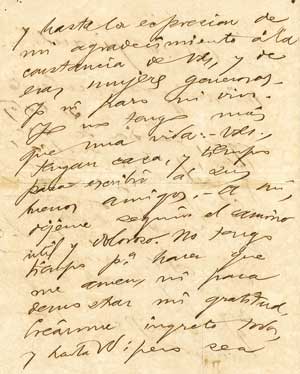 y hasta la expresion de
mi agradecimiento á la
constancia de Vds, y de
esas mujeres generosas.
Yo no paro ni vivo.
Yo no tengo más
que una vida:- Vds.
tengan casa, y tiempo
para escribir al
buenos amigos.- A mí,
déjenme seguir el camino
útil y doloroso. No tengo
tiempo pa. hacer que
me amen, ni para
demostrar mi gratitud.
Creánme ingrato todos,
y hasta Vd: pero sea